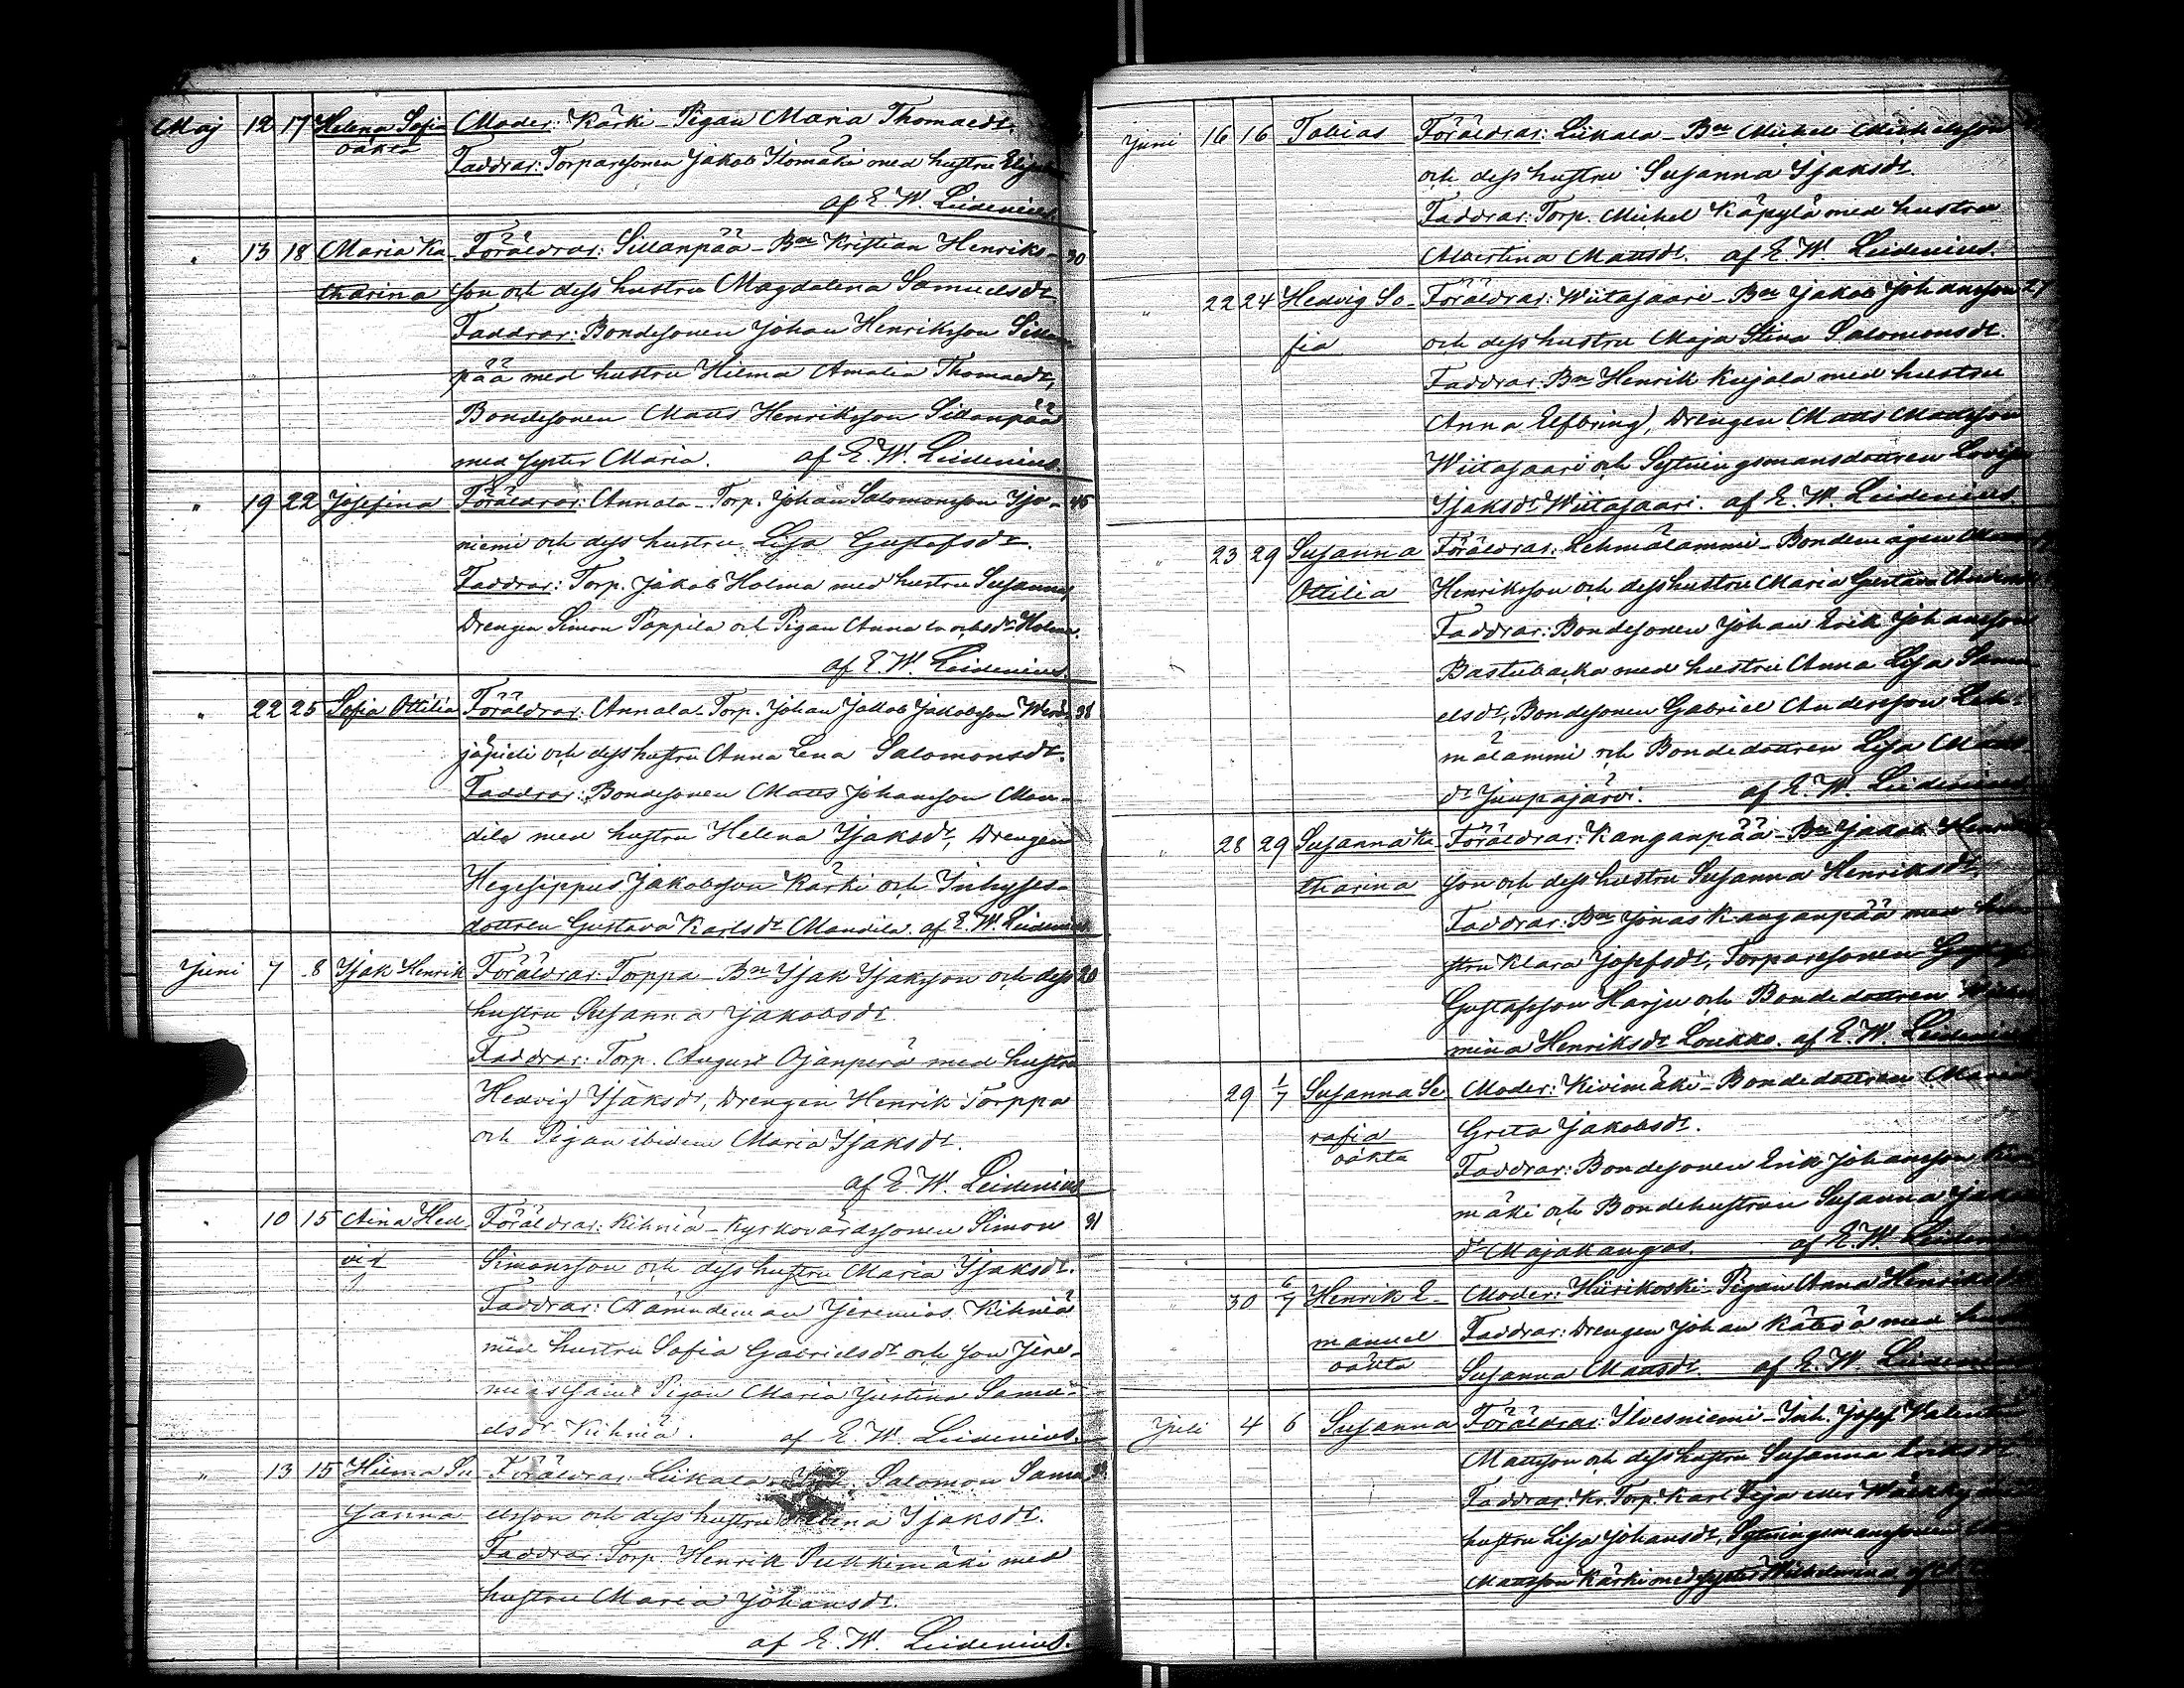 Maj 12 17 Helena Sofia Moder: Kärki - Pigan Maria Thomasdr.
oäkta Faddrar: Torparesonen Jakob Ilomäki med hustru
af E. W. Leidenius.
" 13 18 Maria Ka- Föräldrar: Sillanpää - Bn Kristian Henriks- 30
tharina son och dess hustru Magdalena Samuelsdr.
Faddrar: Bondesonen Johan Henriksson Sillan-
pää med hustru Hilma Amalia Thomasdr,
Bondesonen Matts Henriksson Sillanpää
med syster Maria. af E. W. Leidenius.
" 19 22 Josefina Föräldrar: Annala - Torp. Johan Salomonsson Iso- 45
niemi och dess hustru Lisa Gustafsdr.
Faddrar: Torp. Jakob Holma med hustru Susanna,
Drengen Simon Pappila och Pigan Anna Holma.
af E. W. Leidenius.
" 22 25 Sofia Ottilia Föräldrar: Annala - Torp. Johan Jakob Jakobsson 38
och dess hustru Anna Lena Salomonsdr.
Faddrar: Bondesonen Matts Johansson Man-
dila med hustru Helena Isaksdr, Drengen
Hegesippus Jakobsson Kärki och Inhyses-
dottren Gustava Karlsdr Mandila. af E. W. Leidenius
Juni 7 8 Isak Henrik Föräldrar: Torppa - Bn Isak Isaksson och dess 20
hustru Susanna Jakobsdr.
Faddrar: Torp. August Ojanperä med hustru
Hedvig Isaksdr, Drengen Henrik Torppa
och Pigan ibidem Maria Isaksdr.
af E. W. Leidenius
" 10 15 Aina Hed- Föräldrar: Kihniä - Kyrkovärdssonen Simon 31
vig Simonsson och dess hustru Maria Isaksdr.
Faddrar: Nämndeman Jeremias Kihniä
med hustru Sofia Gabrielsdr och son Jere-
mias samt Pigan Maria Justina Samu-
elsdr Kihniä. af E. W. Leidenius.
" 13 15 Hilma Su- Föräldrar: Liikala - Salomon Samu-
sanna elsson och dess hustru Isaksdr.
Faddrar: Torp. Henrik Pukkimäki med
hustru Maria Johansdr.
af E. W. Leidenius.
Juni 16 16 Tobias Föräldrar: Liikala - Bn Michel Michelsson
och dess hustru Susanna Isaksdr.
Faddrar: Torp. Michel Käpylä med hustru
Albertina Mattsdr. af E. W. Leidenius.
" 22 24 Hedvig So- Föräldrar: Wiitasaari - Bn Jakob Johansson 27
fia och dess hustru Maja Stina Salomonsdr.
Faddrar: Bn Henrik Kujala med hustru
Anna Elfbring, Drengen Matts Mattsson
Wiitasaari och Sytningsmansdottren Lovisa
Isaksdr Wiitasaari. af E. W. Leidenius
" 23 29 Susanna Föräldrar: Lehmälammi - Bondemågen
Ottilia Henriksson och dess hustru Maria Gustava
Faddrar: Bondesonen Johan Erik Johansson
Bastubacka med hustru Anna Lisa Samu-
elsdr, Bondesonen Gabriel Andersson Leh-
mälammi och Bondedottren Lisa Matts-
dr Juupajärvi. af E. W. Leidenius
" 28 29 Susanna Ka- Föräldrar: Kanganpää - Bn Jakob Henriks-
tharina son och dess hustru Susanna Henriksdr,
Faddrar: Bn Jonas Kanganpää med hu-
stru Klara Josefsdr, Torparesonen
Gustafsson Harju och Bondedottren
mina Henriksdr Loukko. af E. W. Leidenius
29 1/7 Susanna Se- Moder: Kivimäki - Bondedottren Maria
rafia Greta Jakobsdr.
oäkta Faddrar: Bondesonen Erik Johansson Kivi-
mäki och Bondehustrun Susanna
dr Majakangas. af E. W. Leidenius
" 30 6/7 Henrik E- Moder: Hiirikoski - Pigan Anna
manuel Faddrar: Drengen Johan Kätkä med
oäkta Susanna Mattsdr. af E. W. Leidenius
Juli 4 6 Susanna Föräldrar: Ilvesniemi - Inh. Josef
Mattsson och dess hustru Susanna Eriksdr
Faddrar: Kr. Torp. Karl
hustru Lisa Johansdr, Sytningsmanssonen
Mattsson Kärki med syster Wilhelmina